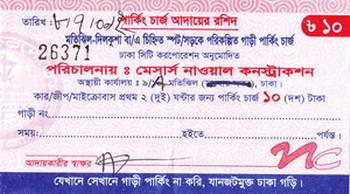 তারিখ: ৮/৭/০৮ পার্কিং চার্জ আদায়ের রশিদ ৳ ১০
মতিঝিল-দিলকুশা বা/এ চিহ্নিত স্পট/সড়কে পরিকল্পিত গাড়ী পার্কিং চার্জ
26371 ঢাকা সিটি করপোরেশন অনুমোদিত
পরিচালনায় : মেসার্স নাওয়াল কনস্ট্রাকশন
অস্থায়ী কার্যালয় : ৯/A মতিঝিল ঢাকা।
কার/জীপ/মাইক্রোবাস প্রথম ২ (দুই) ঘন্টার জন্য পার্কিং চার্জ ১০ (দশ) টাকা
গাড়ী নং
সময়: হইতে পর্যন্ত।
আদায়কারীর স্বাক্ষর
যেখানে সেখানে গাড়ী পার্কিং না করি, যানজটমুক্ত ঢাকা গড়ি।